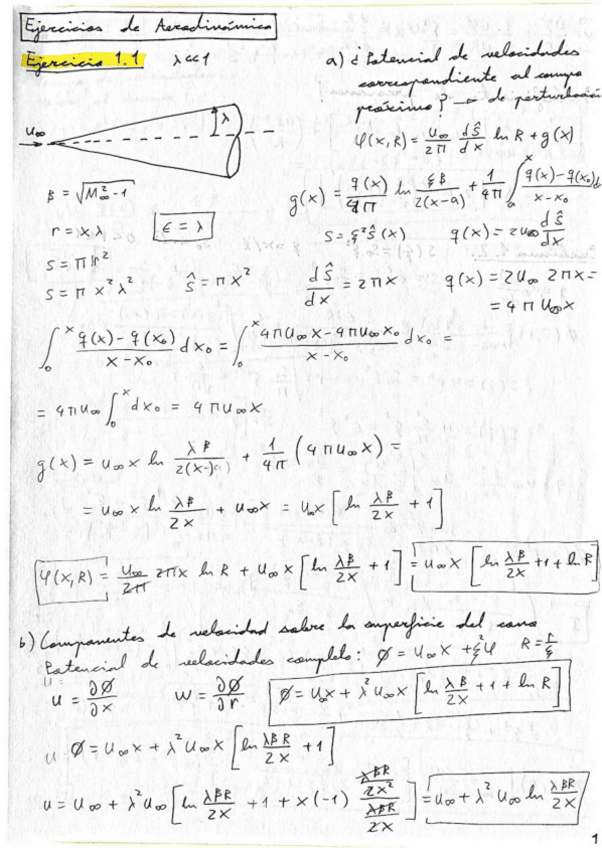 Ejercicios de Aerodinámica
Ejercicio 1.1 λ<<1
a) ¿Potencial de velocidades
correspondiente al campo
próximo? → de perturbación
φ(x,R) = U∞/2π dŜ/dx ln R + g(x)
U∞ λ
β = √(M∞² -1)
g(x) = q(x)/4π ln εβ/2(x-a) + 1/4π ∫₀ˣ (q(x)-q(x₀))/(x-x₀) d
r = xλ ε = λ
S = ε²Ŝ(x) q(x) = 2U∞ dŜ/dx
S = π r²
S = π x² λ² Ŝ = π x² dŜ/dx = 2πx q(x) = 2U∞ 2πx =
= 4πU∞x
∫₀ˣ (q(x)-q(x₀))/(x-x₀) dx₀ = ∫₀ˣ (4πU∞x-4πU∞x₀)/(x-x₀) dx₀ =
= 4πU∞ ∫₀ˣ dx₀ = 4πU∞x
g(x) = U∞x ln λβ/2(x-a) + 1/4π (4πU∞x) =
= U∞x ln λβ/2x + U∞x = U∞x [ln λβ/2x + 1]
φ(x,R) = U∞/2π 2πx ln R + U∞x [ln λβ/2x + 1] = U∞x [ln λβ/2x + 1 + ln R]
b) Componentes de velocidad sobre la superficie del cono
Potencial de velocidades completo: Ø = U∞x + ε²φ R = r/ε
u = ∂Ø/∂x w = ∂Ø/∂r Ø = U∞x + λ²U∞x [ln λβ/2x + 1 + ln R]
u Ø = U∞x + λ²U∞x [ln λβR/2x + 1]
u = U∞ + λ²U∞ [ln λβR/2x + 1 + x(-1) (λβR/2x²)/(λβR/2x)] = U∞ + λ²U∞ ln λβR/2x
1